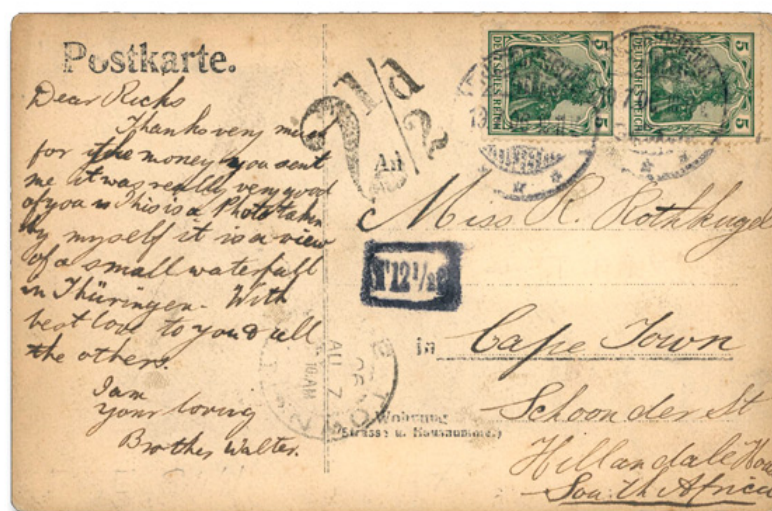 Postkarte.
Dear Ricks
Thanks very much
for the money you sent
me it was really very good
of you is This is a Photo taken
by myself it is a view
of a small waterfall
in Thüringen. With
best love to you & all
the others.
I am
your loving
Brother Walter.
2½d
An
5 DEUTSCHES REICH 5
5 DEUTSCHES REICH 5
Miss R. Rothkugel
T 12½
in Cape Town
AU 7
06
10 AM
Wohnung
(Strasse u. Hausnummer)
Schoonder St
Hillandale Hou
South Africa